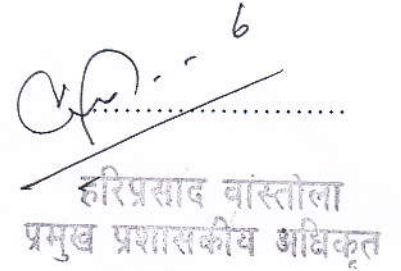 6
हरिप्रसाद वांस्तोला
प्रमुख प्रशासकीय अधिकृत